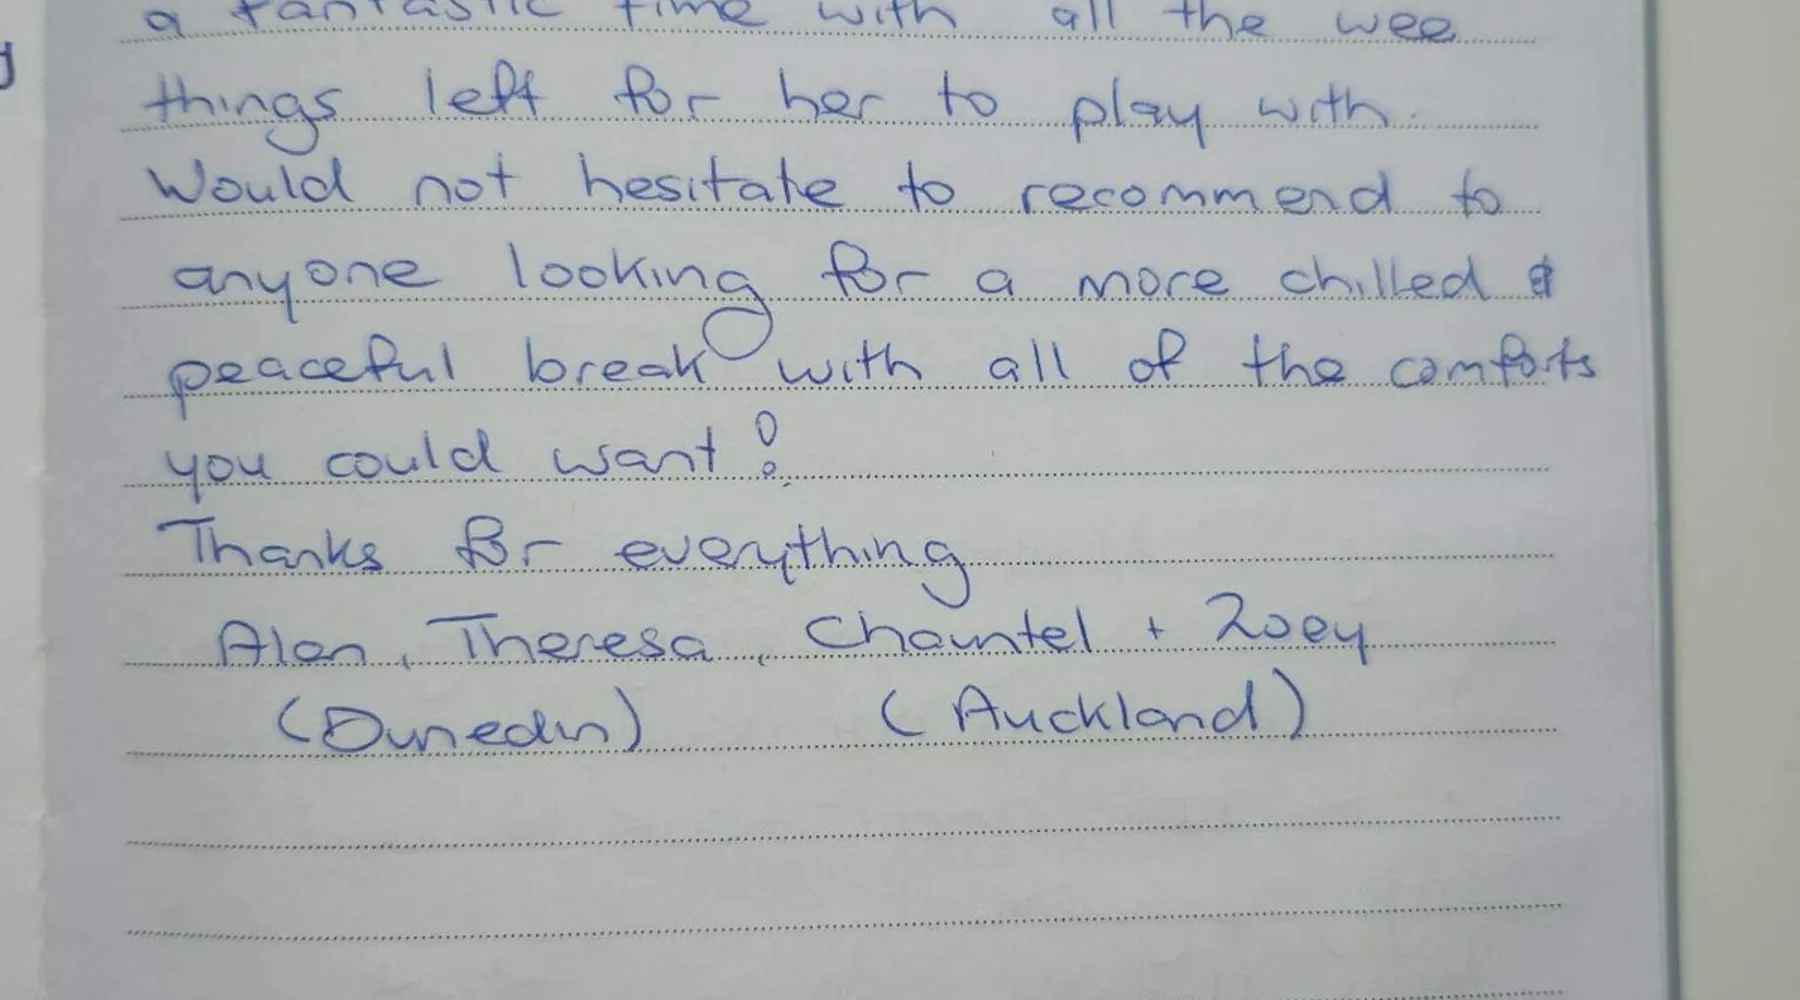 a fantastic time with all the wee
things left for her to play with.
Would not hesitate to recommend to
anyone looking for a more chilled &
peaceful break with all of the comforts
you could want!
Thanks for everything
Alan, Theresa, Chauntel + Zoey
(Dunedin) (Auckland)